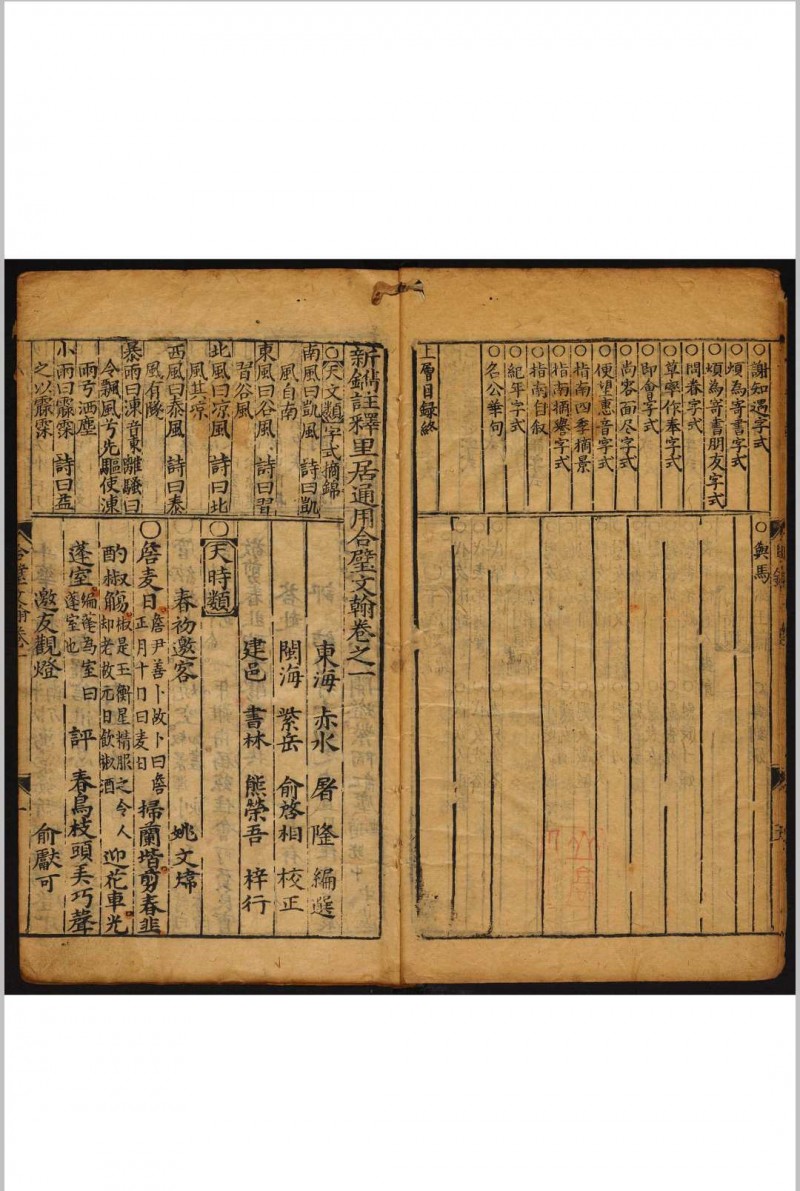 ○謝知遇字式
○煩為寄書字式
○煩為寄書朋友字式
○問春字式
○草率作奉字式
○即會字式
○尚容面尽字式
○便望惠音字式
○指南四季摘景
○指南摘粦字式
○指南自叙
○紀年字式
○名公華句
上層目録終
○輿馬
新鐫註釋里居通用合璧文翰卷之一
東海 赤水 屠隆 編選
閩海 紫岳 俞啓相 校正
建邑 書林 熊榮吾 梓行
○天文類字式摘錦
南風曰凱風 詩曰凱
風自南
東風曰谷風 詩曰習
習谷風
北風曰凉風 詩曰北
風其凉
西風曰泰風 詩曰泰
風有隊
暴雨曰凍音東離騷曰
令飄風兮先驅使凍
雨兮洒塵
小雨曰霡霂 詩曰益
之以霡霂
○天時類
春初邀客 姚文煒
○詹麦日 詹尹善卜故卜曰詹
正月十日曰麦日 掃蘭堦剪春韭
酌椒觴 椒是玉衡星精服之令人
却老故元日飲椒酒 迎花車光
蓬室 編蓬為室曰
蓬室也 評 春鳥枝頭美巧聲
邀友觀燈 俞獻可
合璧文翰卷一